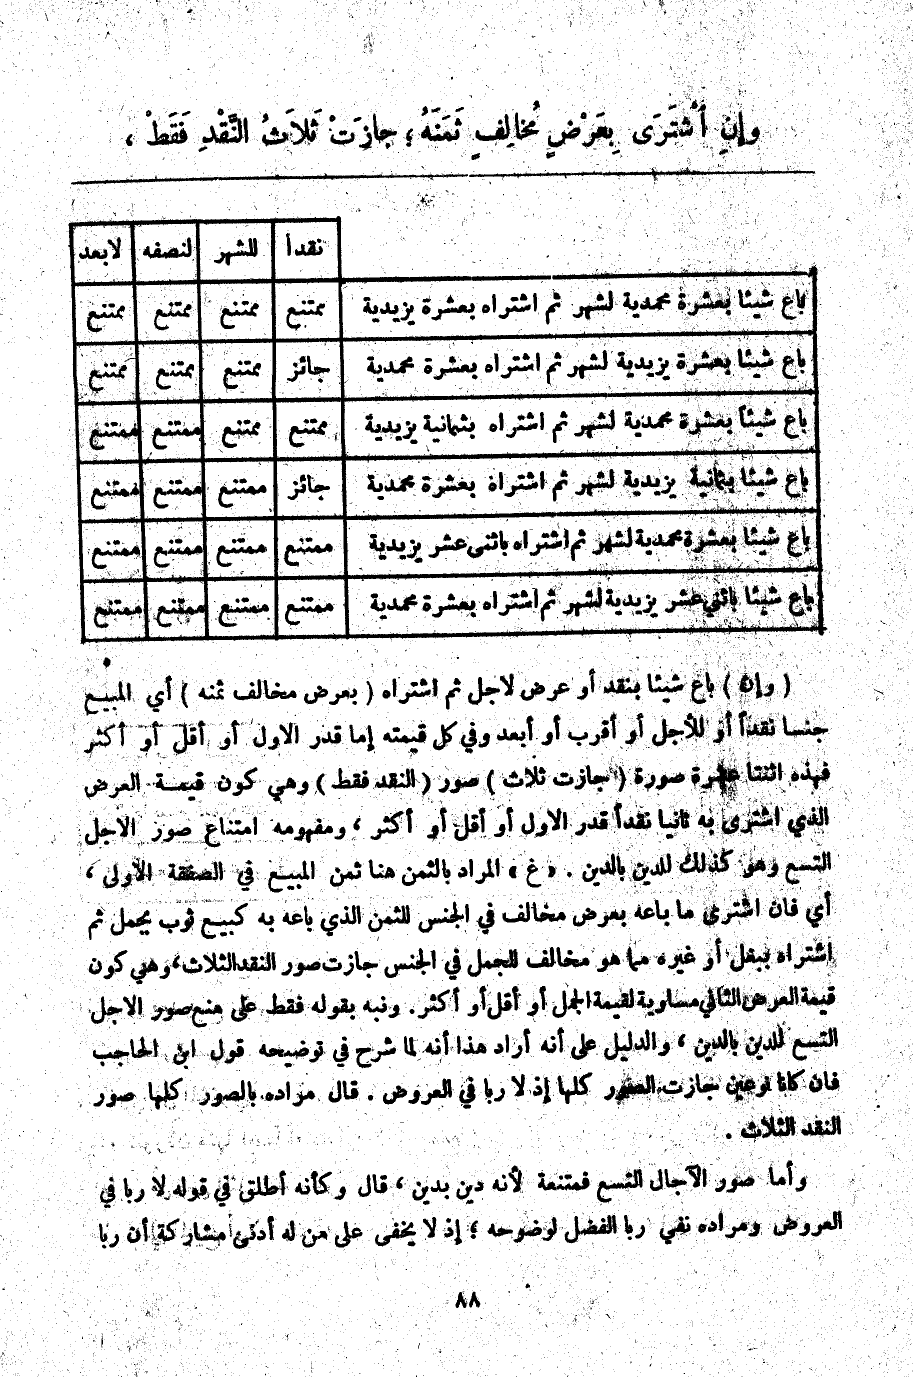 وإنِ أُشْتَرَى بِعَرْضٍ مُخالِفٍ ثَمَنَهُ ؛ جازَتْ ثَلاَثُ النَّقْدِ فَقَطْ ،
نقدأ للشهر لنصفه لابعد
باع شيئا بعشرة محمدية لشهر ثم اشتراه بعشرة يزيدية ممتنع ممتنع ممتنع ممتنع
باع شيئا بعشرة يزيدية لشهر ثم اشتراه بعشرة محمدية جائز ممتنع ممتنع ممتنع
باع شيئاً بعشرة محمدية لشهر ثم اشتراه بثمانية يزيدية ممتنع ممتنع ممتنع ممتنع
باع شيئا بثمانية يزيدية لشهر ثم اشتراه بعشرة محمدية جائز ممتنع ممتنع ممتنع
باع شيئا بعشرة محمدية لشهر ثم اشتراه باثنى عشر يزيدية ممتنع ممتنع ممتنع ممتنع
باع شيئا باثني عشر يزيدية لشهر ثم اشتراه بعشرة محمدية ممتنع ممتنع ممتنع ممتنع
( وإن ) باع شيئا بنقد أو عرض لاجل ثم اشتراه ( بعرض مخالف ثمنه ) أي المبيع
جنسا نقدأ أو للأجل أو أقرب أو أبعد وفي كل قيمته إما قدر الاول أو أقل أو أكثر
فهذه اثنتا عشرة صورة ( جازت ثلاث ) صور ( النقد فقط ) وهي كون قيمة العرض
الذي اشترى به ثانيا نقدأ قدر الاول أو أقل أو أكثر ، ومفهومه امتناع صور الاجل
التسع وهو كذلك للدين بالدين . « غ » المراد بالثمن هنا ثمن المبيع في الصفقة الأولى ،
أي فان اشترى ما باعه بعرض مخالف في الجنس للثمن الذي باعه به كبيع ثوب بجمل ثم
اشتراه ببغل أو غيره مما هو مخالف للجمل في الجنس جازت صور النقد الثلاث ، وهي كون
قيمة العرض الثاني مساوية لقيمة الجمل أو أقل أو أكثر . ونبه بقوله فقط على منع صور الاجل
التسع للدين بالدين ، والدليل على أنه أراد هذا أنه لما شرح في توضيحه قول ابن الحاجب
فان كانا نوعين جازت الصور كلها إذ لا ربا في العروض . قال مراده بالصور كلها صور
النقد الثلاث .
وأما صور الآجال التسع فممتنعة لأنه دين بدين ، قال وكأنه أطلق في قوله لا ربا في
العروض ومراده نفي ربا الفضل لوضوحه ؛ إذ لا يخفى على من له أدنى مشاركة أن ربا
٨٨